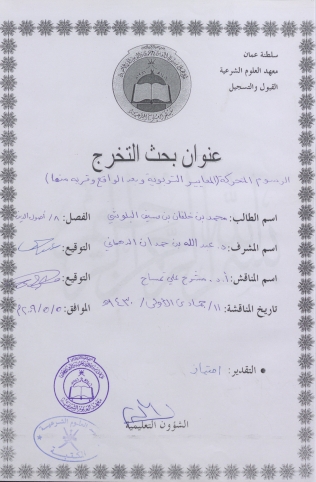 سلطنة عمان
معهد العلوم الشرعية
القبول والتسجيل
عنوان بحث التخرج
الرسوم المتحركة (المعايير التربوية وبعد الواقع وقربه منها)
اسم الطالب: محمد بن خلفان بن سيف البلوشي الفصل: ٨/ أصول الدين
اسم المشرف: د. عبد الله بن حمدان الدهماني التوقيع:
اسم المناقش: أ.د. ممدوح علي التوقيع:
تاريخ المناقشة: ١١/ جمادى الأولى/ ١٤٣٠هـ الموافق: ٢٠٠٩/٥/٥م
• التقدير: امتياز
الشؤون التعليمية